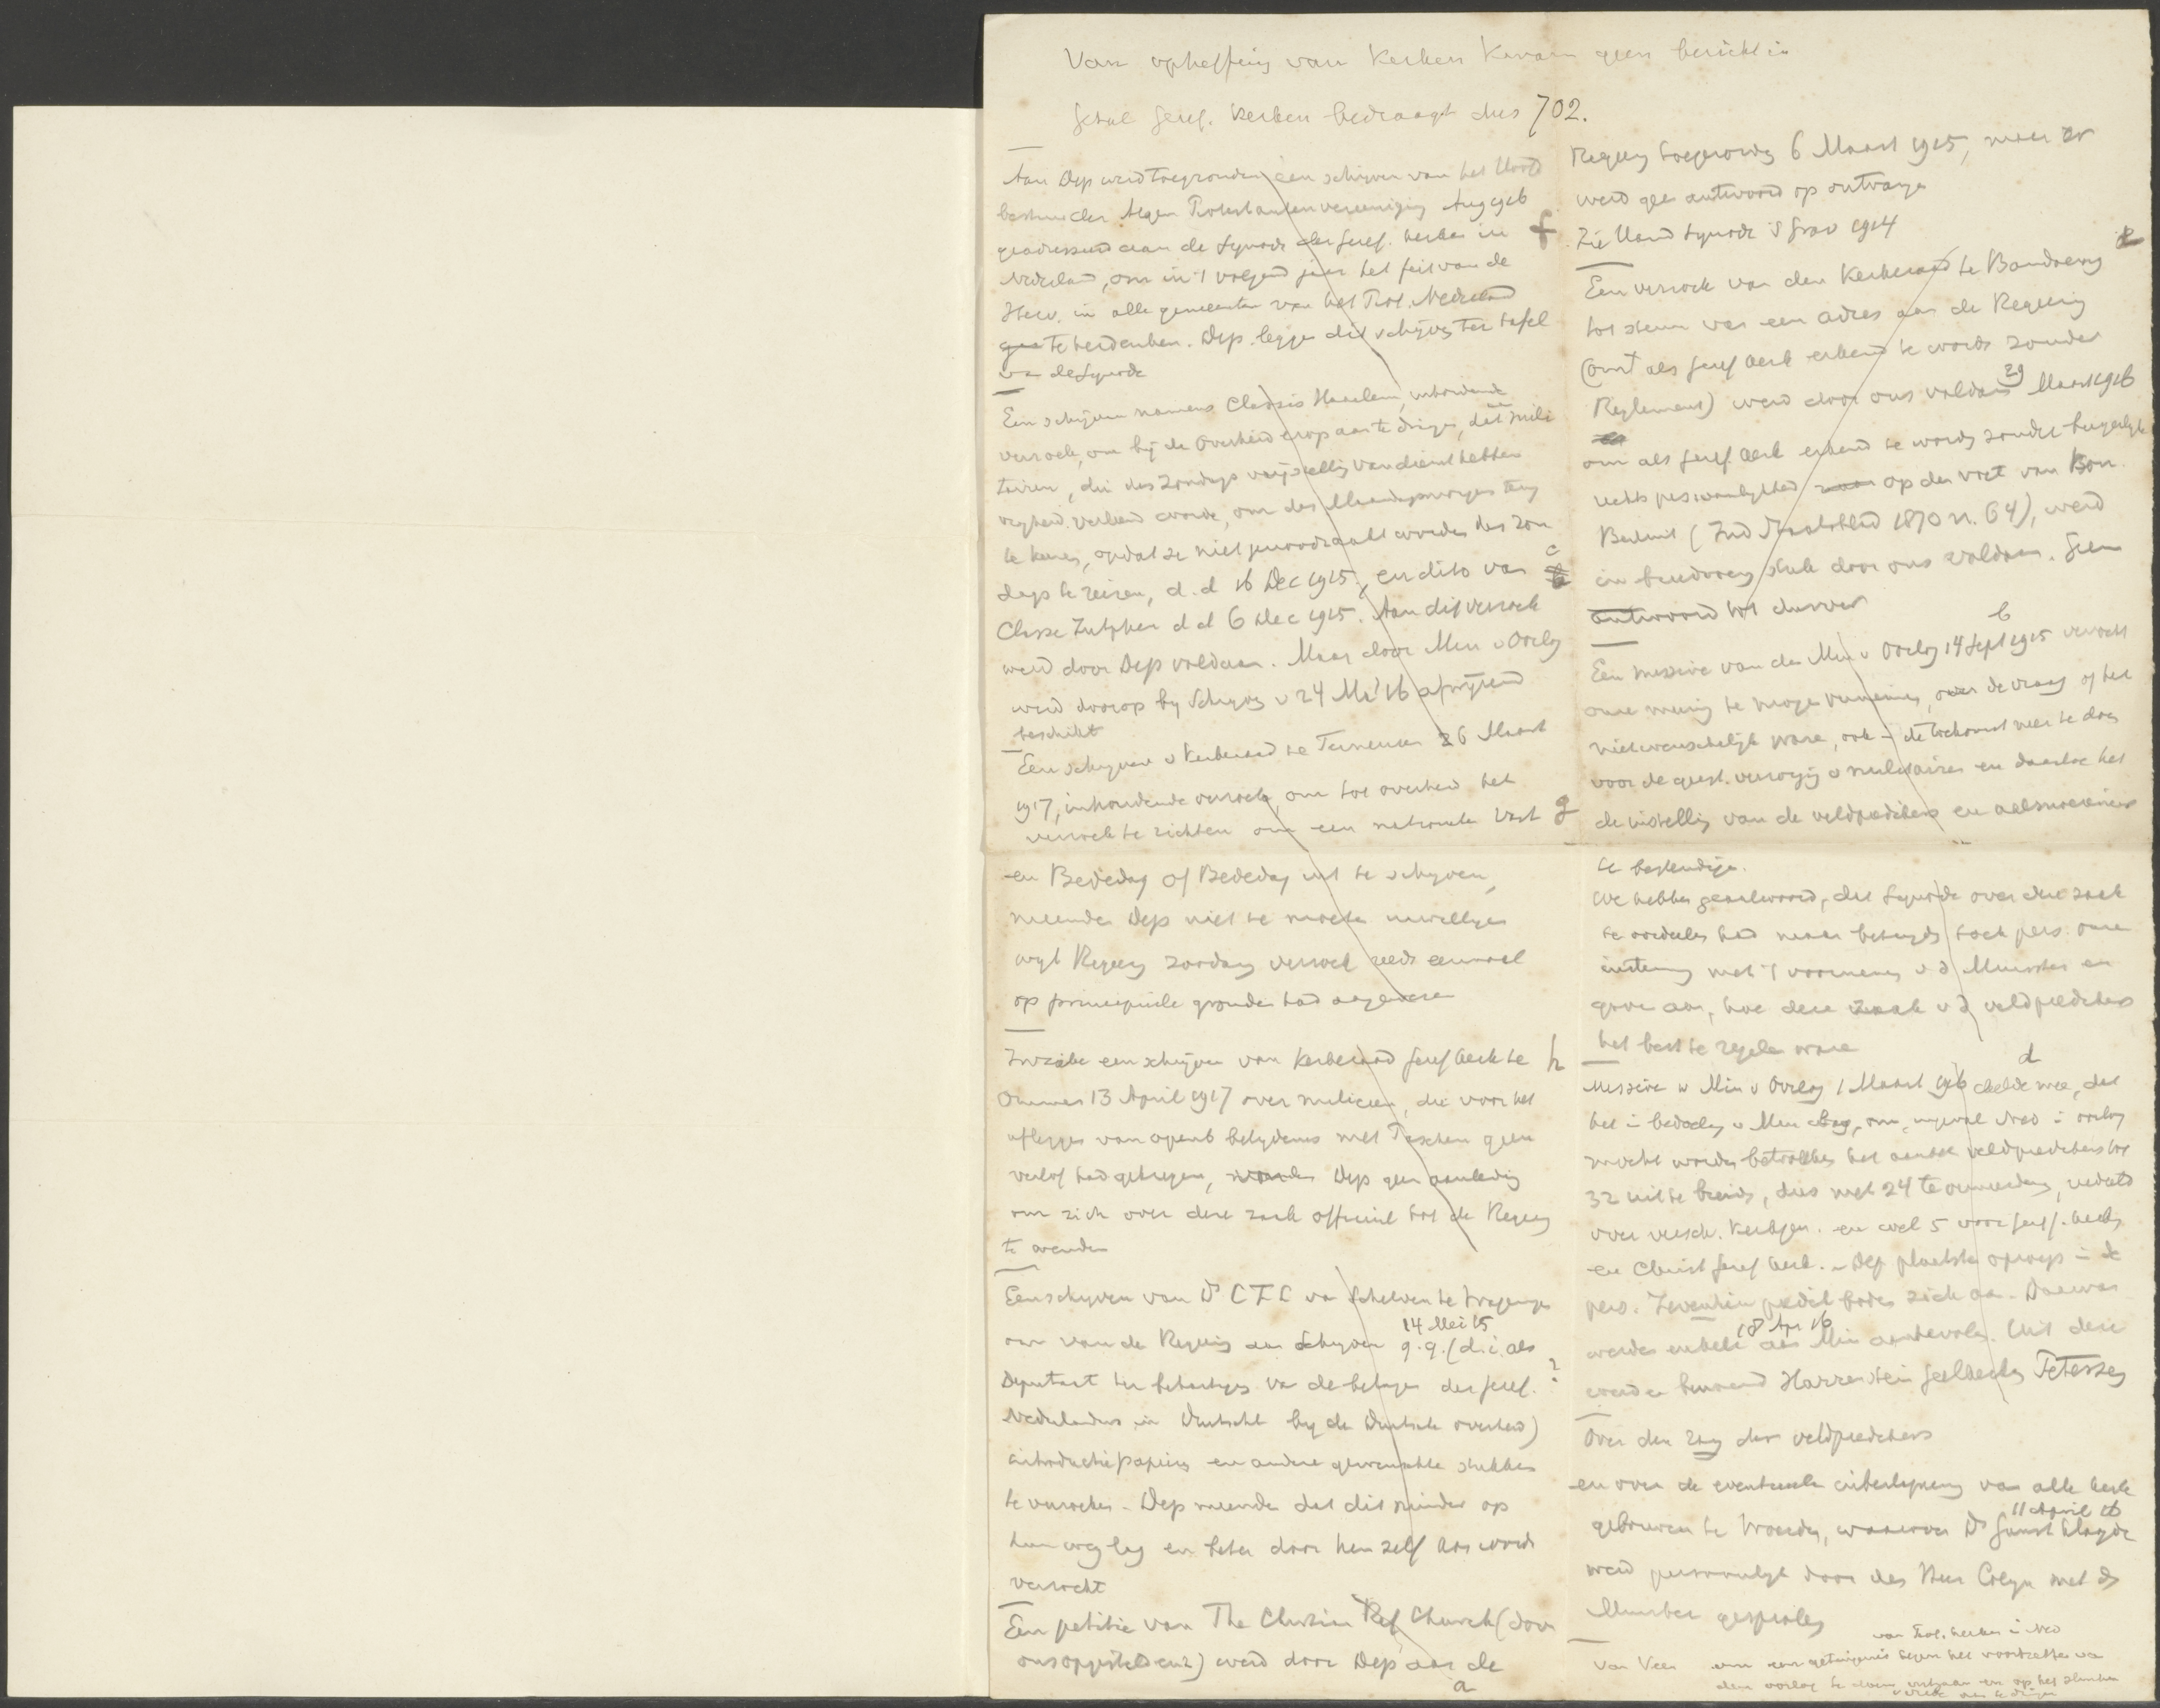 Van opheffing van Kerken kwam geen bericht in
Getal Geref. Kerken bedraagt dus 702.
Aan Dep werd toegezonden een schrijven van het Hoofd
bestuur der Algem Protestantenvereeniging Aug 1916
geadresseerd aan de Synode der Geref. Kerken in f
Nederland, om in 't volgend jaar het feit van de
Herv. in alle gemeenten van het Prot. Nederland
te herdenken. Dep. leggen dit schrijven ter tafel
van de Synode
Een schrijven namens Classis Haarlem, inhoudende
verzoek, om bij de Overheid erop aan te dringen, dat mili
tairen, die des Zondags vrijstelling van dienst hebben
vrijheid verleend worde, om des Maandagmorgens terug
te keeren, opdat ze niet genoodzaakt worden des Zon
dags te reizen, d.d 16 Dec 1915, en dito van c
Classe Zutphen dd 6 Dec 1915. Aan dit verzoek
werd door Dep voldaan. Maar door Min v Oorlog
werd daarop bij schrijven v 24 Mei 16 afwijzend
beschikt
Een schrijven v Kerkeraad te Terneuzen 26 Maart
1917, inhoudende verzoek, om tot overheid het
verzoek te richten om een nationale Vast g
en Bededag of Bededag uit te schrijven,
meenden Dep niet te moeten inwilligen
wijl Regeering zoodanig verzoek reeds eenmaal
op principieele gronden had afgewezen
Inzake een schrijven van Kerkeraad Geref Kerk te h
Ommen 13 April 1917 over miliciens, die voor het
afleggen van openb belijdenis met Paschen geen
verlof had gekregen, Dep geen aanleiding
om zich over deze zaak officieel tot de Regeering
te wenden
Een schrijven van Ds C I C van Schelven te
om van de Regeering een schrijven 14 Mei 15 q.q. (d.i. als
Deputaat ter behartiging van de belangen der Geref. ?
Nederlanders in Duitschl bij de Duitsche overheid)
introductiepapieren en andere gewenschte stukken
te verzoeken - Dep meende dat dit minder op
hun weg lag en beter door hem zelf kon worden
verzocht
Een petitie van The Christian Ref Church (door
ons ) werd door Dep aan de
a
Regeering toegezonden 6 Maart 1915, maar er
werd geen antwoord op ontvangen
Zie Hand Synode 's Grav 1914
Een verzoek van den Kerkeraad te Bandoeng e
tot steun van een adres aan de Regeering
(om als Geref Kerk erkend te worden zonder
Reglement) werd door ons voldaan 29 Maart 1916
om als Geref. Kerk erkend te worden zonder burgerlijke
rechtspersoonlijkheid op den voet van Kon.
Besluit (Ind Staatsblad 1870 n. 64), werd
in breedvoerig stuk door ons voldaan. Geen
antwoord tot dusver
b
Een missive van den Min v Oorlog 14 Sept 1915 verzocht
onze meening te mogen vernemen, over de vraag of het
niet wenschelijk ware, ook in de toekomst meer te doen
voor de geest. verzorging v militairen en daartoe het
de instelling van de veldpredikers en aalmoezeniers
te bestendigen.
We hebben geantwoord, dat Synode over deze zaak
te oordeelen had maar betuigden toch pers. onze
instemming met 't voornemen v d Minister en
gaven aan, hoe deze zaak v d veldpredikers
het best te regelen ware
d
Missive v Min v Oorlog 1 Maart 1916 deelde mee, dat
het in bedoeling v Min lag, om, ingeval Ned in oorlog
mocht worden betrokken het aantal veldpredikers tot
32 uit te breiden, dus met 24 te vermeerderen, verdeeld
over versch. Kerkgen. en wel 5 voor Geref. Kerken
en Christ Geref Kerk. - Dep plaatsten oproep in de
pers. Zeventien predik boden zich aan. Daarvan
werden enkele 18 Apr 16 aan Min aanbevolen. Uit deze
werden benoemd Harrenstein Geelkerken
Over den rang der veldpredikers
en over de eventueele inbeslagneming van alle kerk
gebouwen te Woerden, waarover Ds Gunst klaagde 11 April 16
werd persoonlijk door den Heer Colijn met den
Minister gesproken
van Prot. Kerken in Ned
Van Veen om een getuigenis tegen het voortzetten van
den oorlog te doen uitgaan en op het sluiten